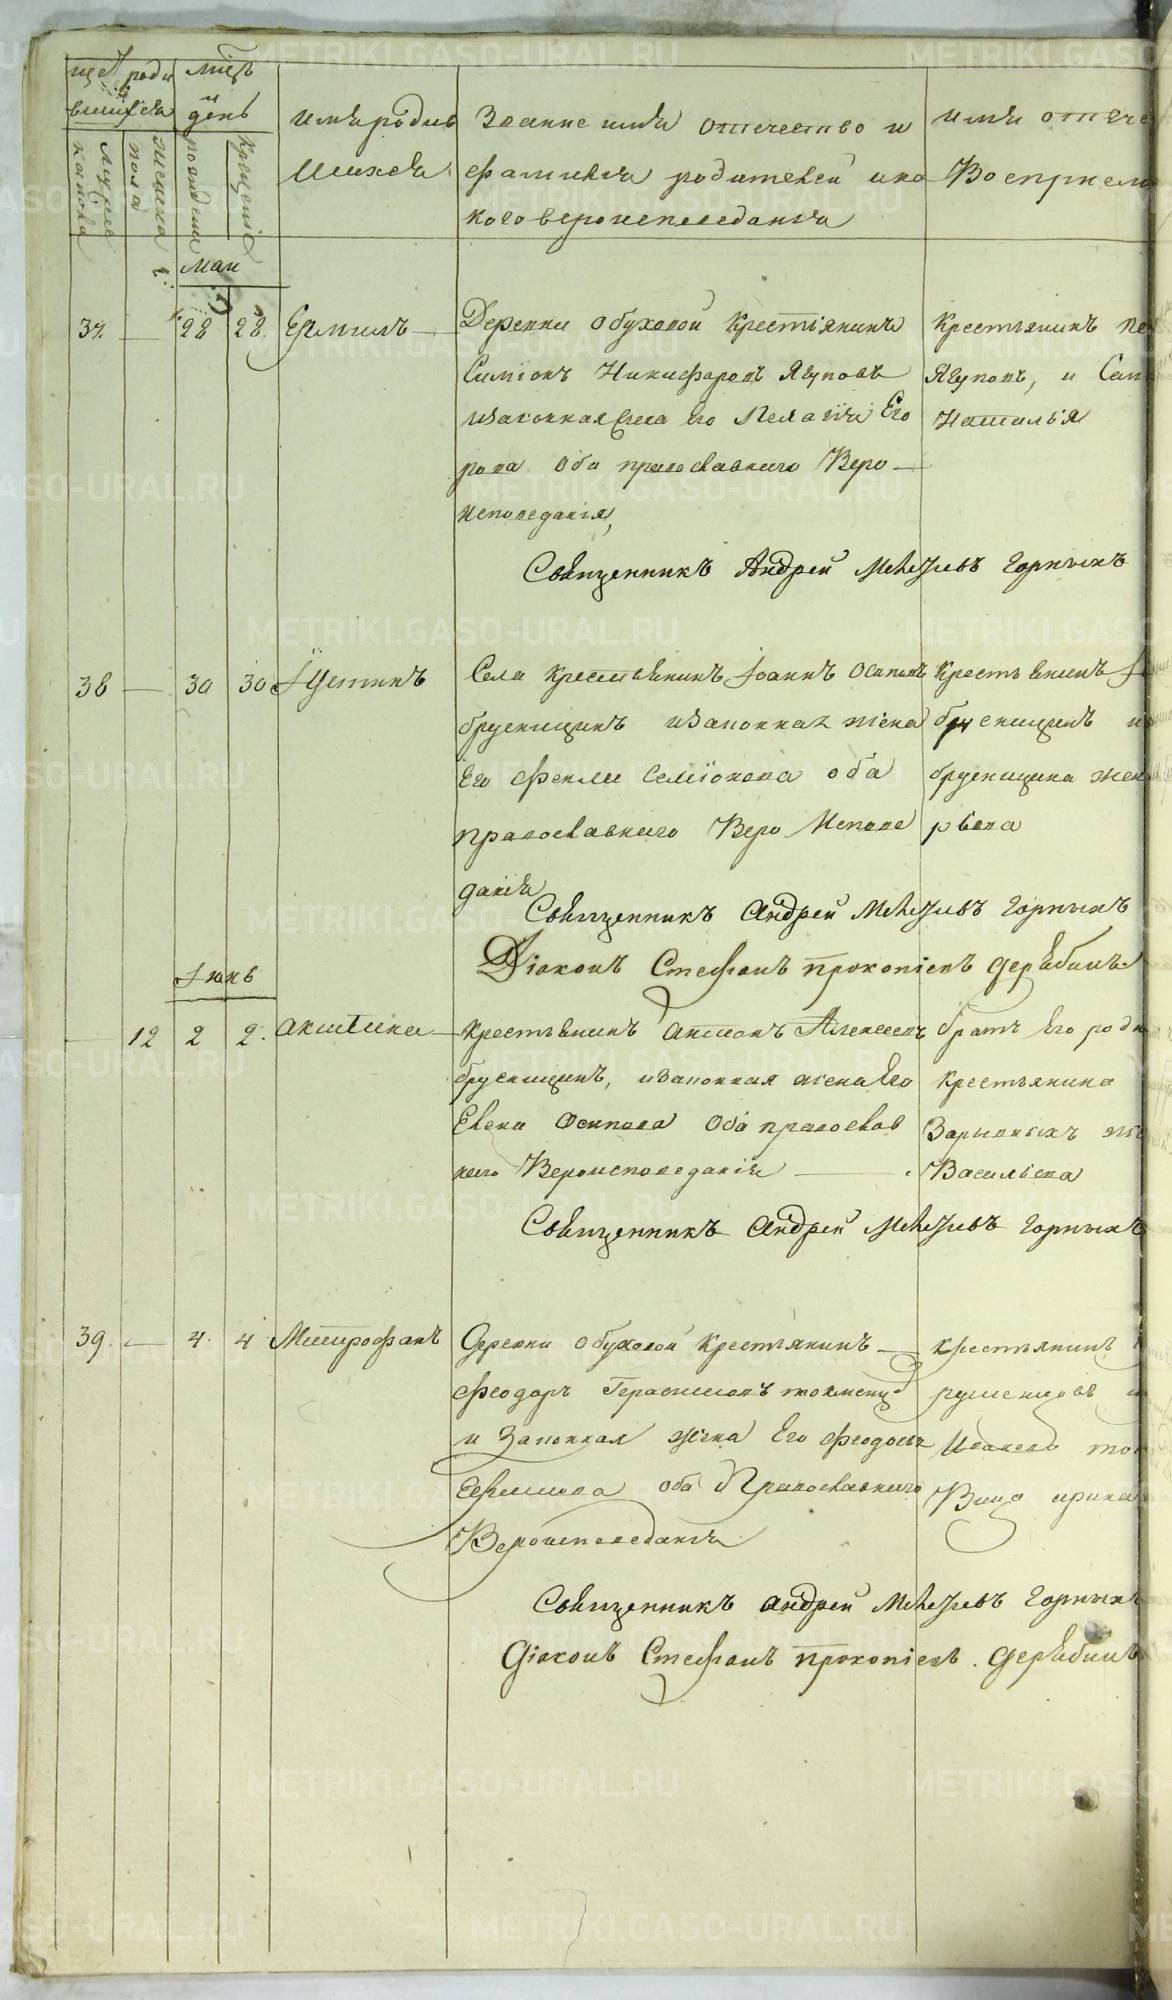 щетъ роди
вшихся
мужеска
пола
женска
пола
мѣсяцъ
и
день
рожденія
крещенія
имя родив
шихся
Званіе имя отечество и
фамилія родителей и ка
кого вероисповеданія
имя отече
Восприем
маи
37. — 28 28. Ермилъ —
Деревни Обуховой Крестіянинъ
Симіонъ Никифоровъ Ягуповъ
и законная жена Его Пелагія Его
рова Оба православнаго Веро —
исповеданія,
Крестьянинъ
Ягуповъ, и
Наталья
Священникъ Андрей Меѳодіевъ Горныхъ
38 — 30 30 Іустинъ
Села Крестьянинъ Іоаннъ Осиповъ
брусницинъ и законная жена
Его Фекла Семіонова оба
православнаго Веро Испове
данія
Крестьянинъ
брусницинъ и
брусницина жен
рьева
Священникъ Андрей Меѳодіевъ Горныхъ
Діаконъ Стефанъ Прокопіевъ Дерябинъ
Іюнь
— 12 2 2. Акилина —
Крестьянинъ Алексеевъ
брусницинъ, и законная жена Его
Елена Осипова Оба православ
наго Вероисповеданія —
братъ Его родн
крестьянина
Зырянныхъ
Васильева
Священникъ Андрей Меѳодіевъ Горныхъ
39. — 4. 4 Митрофанъ
Деревни Обуховой Крестьянинъ —
Феодоръ Герасимовъ
и Законная жена Его Феодосья
Ефимова оба Православнаго
Вероисповеданія
крестьянинъ
Священникъ Андрей Меѳодіевъ Горныхъ
Діаконъ Стефанъ Прокопіевъ. Дерябинъ
METRIKI.GASO-URAL.RU